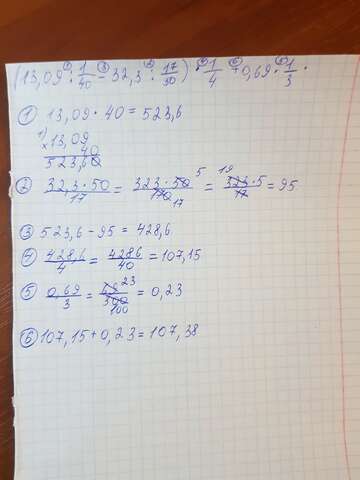 (13,09 : 1/40 - 32,3 : 17/50) · 1/4 + 0,69 · 1/3 .
① 13,09 · 40 = 523,6
1) × 13,09
40
523,60
② 32,3 · 50/17 = 323 · 50 5/170 17 = 19 323 · 5/17 = 95
③ 523,6 - 95 = 428,6
④ 428,6/4 = 4286/40 = 107,15
⑤ 0,69/3 = 69 23/300 100 = 0,23
⑥ 107,15 + 0,23 = 107,38